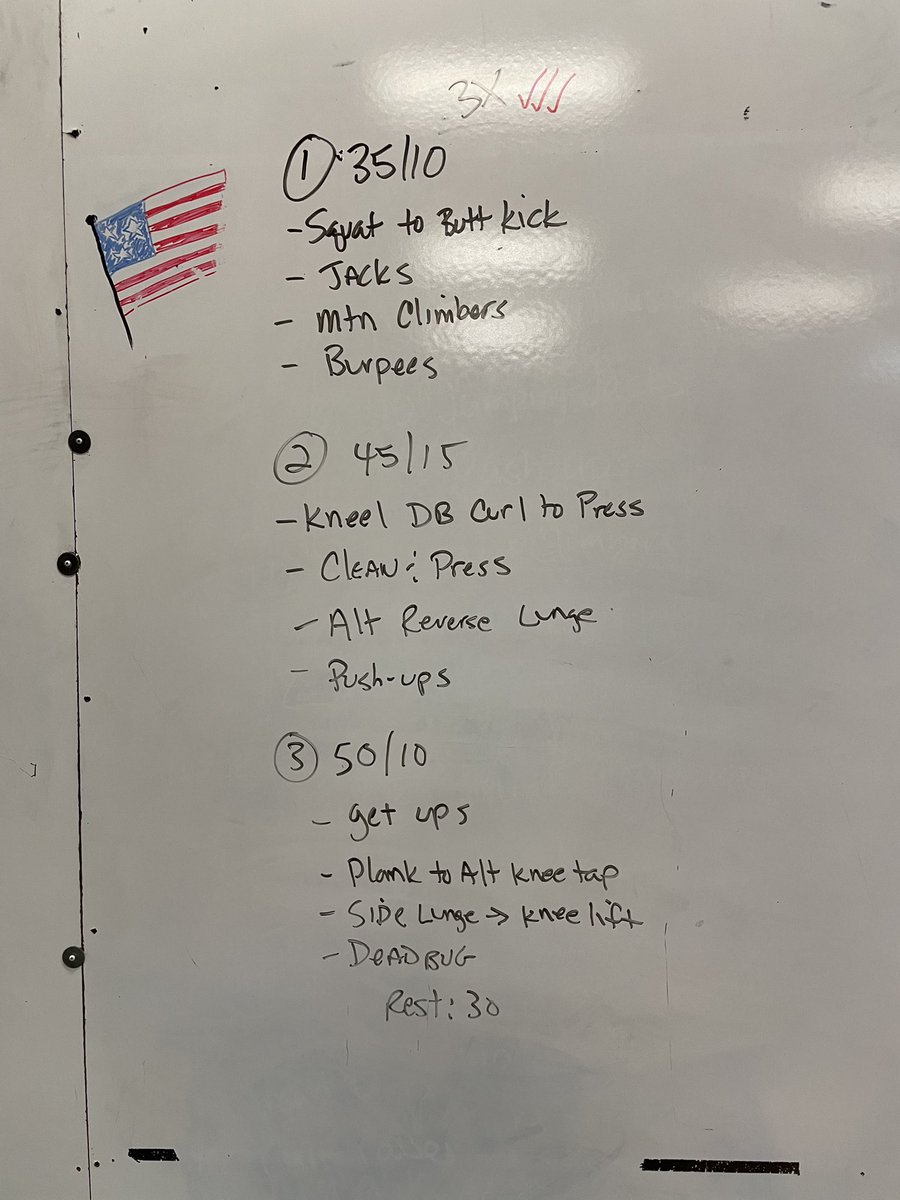 3X ✓✓✓
① :35/10
- Squat to Butt kick
- JACKS
- Mtn Climbers
- Burpees
② 45/15
- Kneel DB Curl to Press
- CLEAN & Press
- Alt Reverse Lunge
- Push-ups
③ 50/10
- get ups
- Plank to Alt knee tap
- SIDE Lunge → knee lift
- DEADBUG
Rest: 30